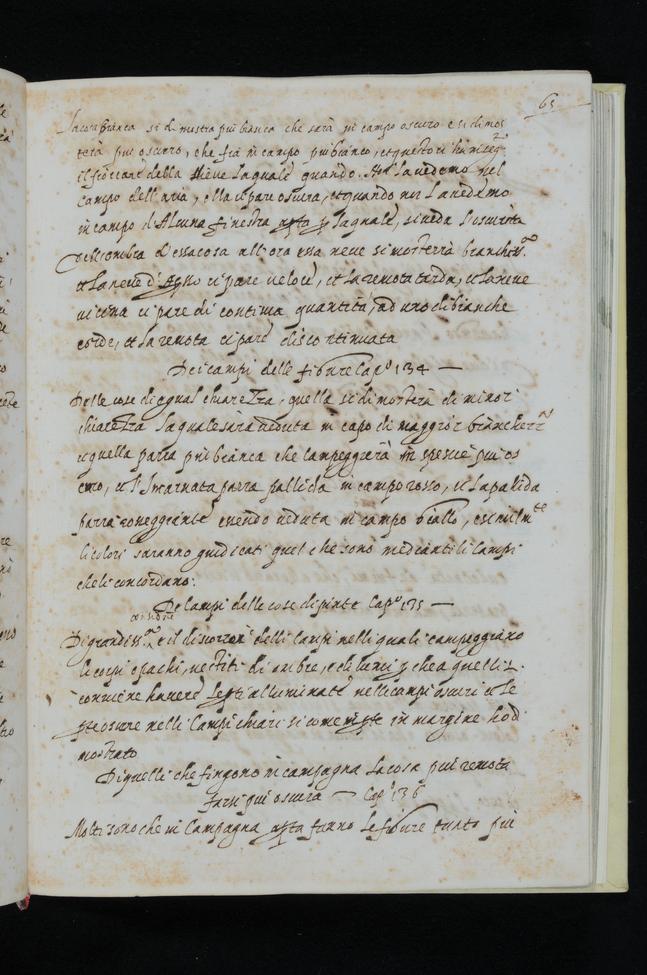 65
La cosa bianca si dimostra piu bianca che sarà in campo oscuro e si dimos
terà piu oscura, che fia in campo piu bianco, et questo ci ha inseg.
il fioccare della Neve la quale quando Noi la vedemo nel
campo dell'aria, ella ci pare oscura, et quando noi la vedemo
in campo d'Alcuna finestra apta p la quale, si veda l'oscurità
dell'ombra d'essa cosa all'ora essa neve si mosterrà bianchiss.
et La neve d'Apso ci pare veloce, et La remota tarda, et La neve
vicina ci pare di continua quantità, ad uso di bianche
corde, et La remota ci pare discontinuata
De i campi delle figure Cap.° 134 —
Delle cose di egual chiarezza, quella si dimosterà di minor
chiarezza la quale sarà veduta in capo di maggior bianchezz
et quella parra piu bianca che campeggierà in spatio piu os
curo, et l'Incarnata parra pallida in campo rosso, et La palida
parra rosseggiante essendo veduta in campo giallo, e similmte
li colori saranno giudicati quel che sono mediantili campi
che li circondano.
De campi delle cose dipinte Cap° 135 —
Di grandiss. è il discorrere delli campi nelli quali campeggiano
li corpi opachi, vestiti di ombre, e de lumi p che a quelli si
conviene havere le pti alluminate nelli campi oscuri et le
pti oscure nelli Campi chiari si come in margine ho di
mostrato
Di quelli che fingono in campagna La cosa piu remota
Farsi piu oscura — Cap 136
Molti sono che in Campagna apta fanno Le figure tanto piu